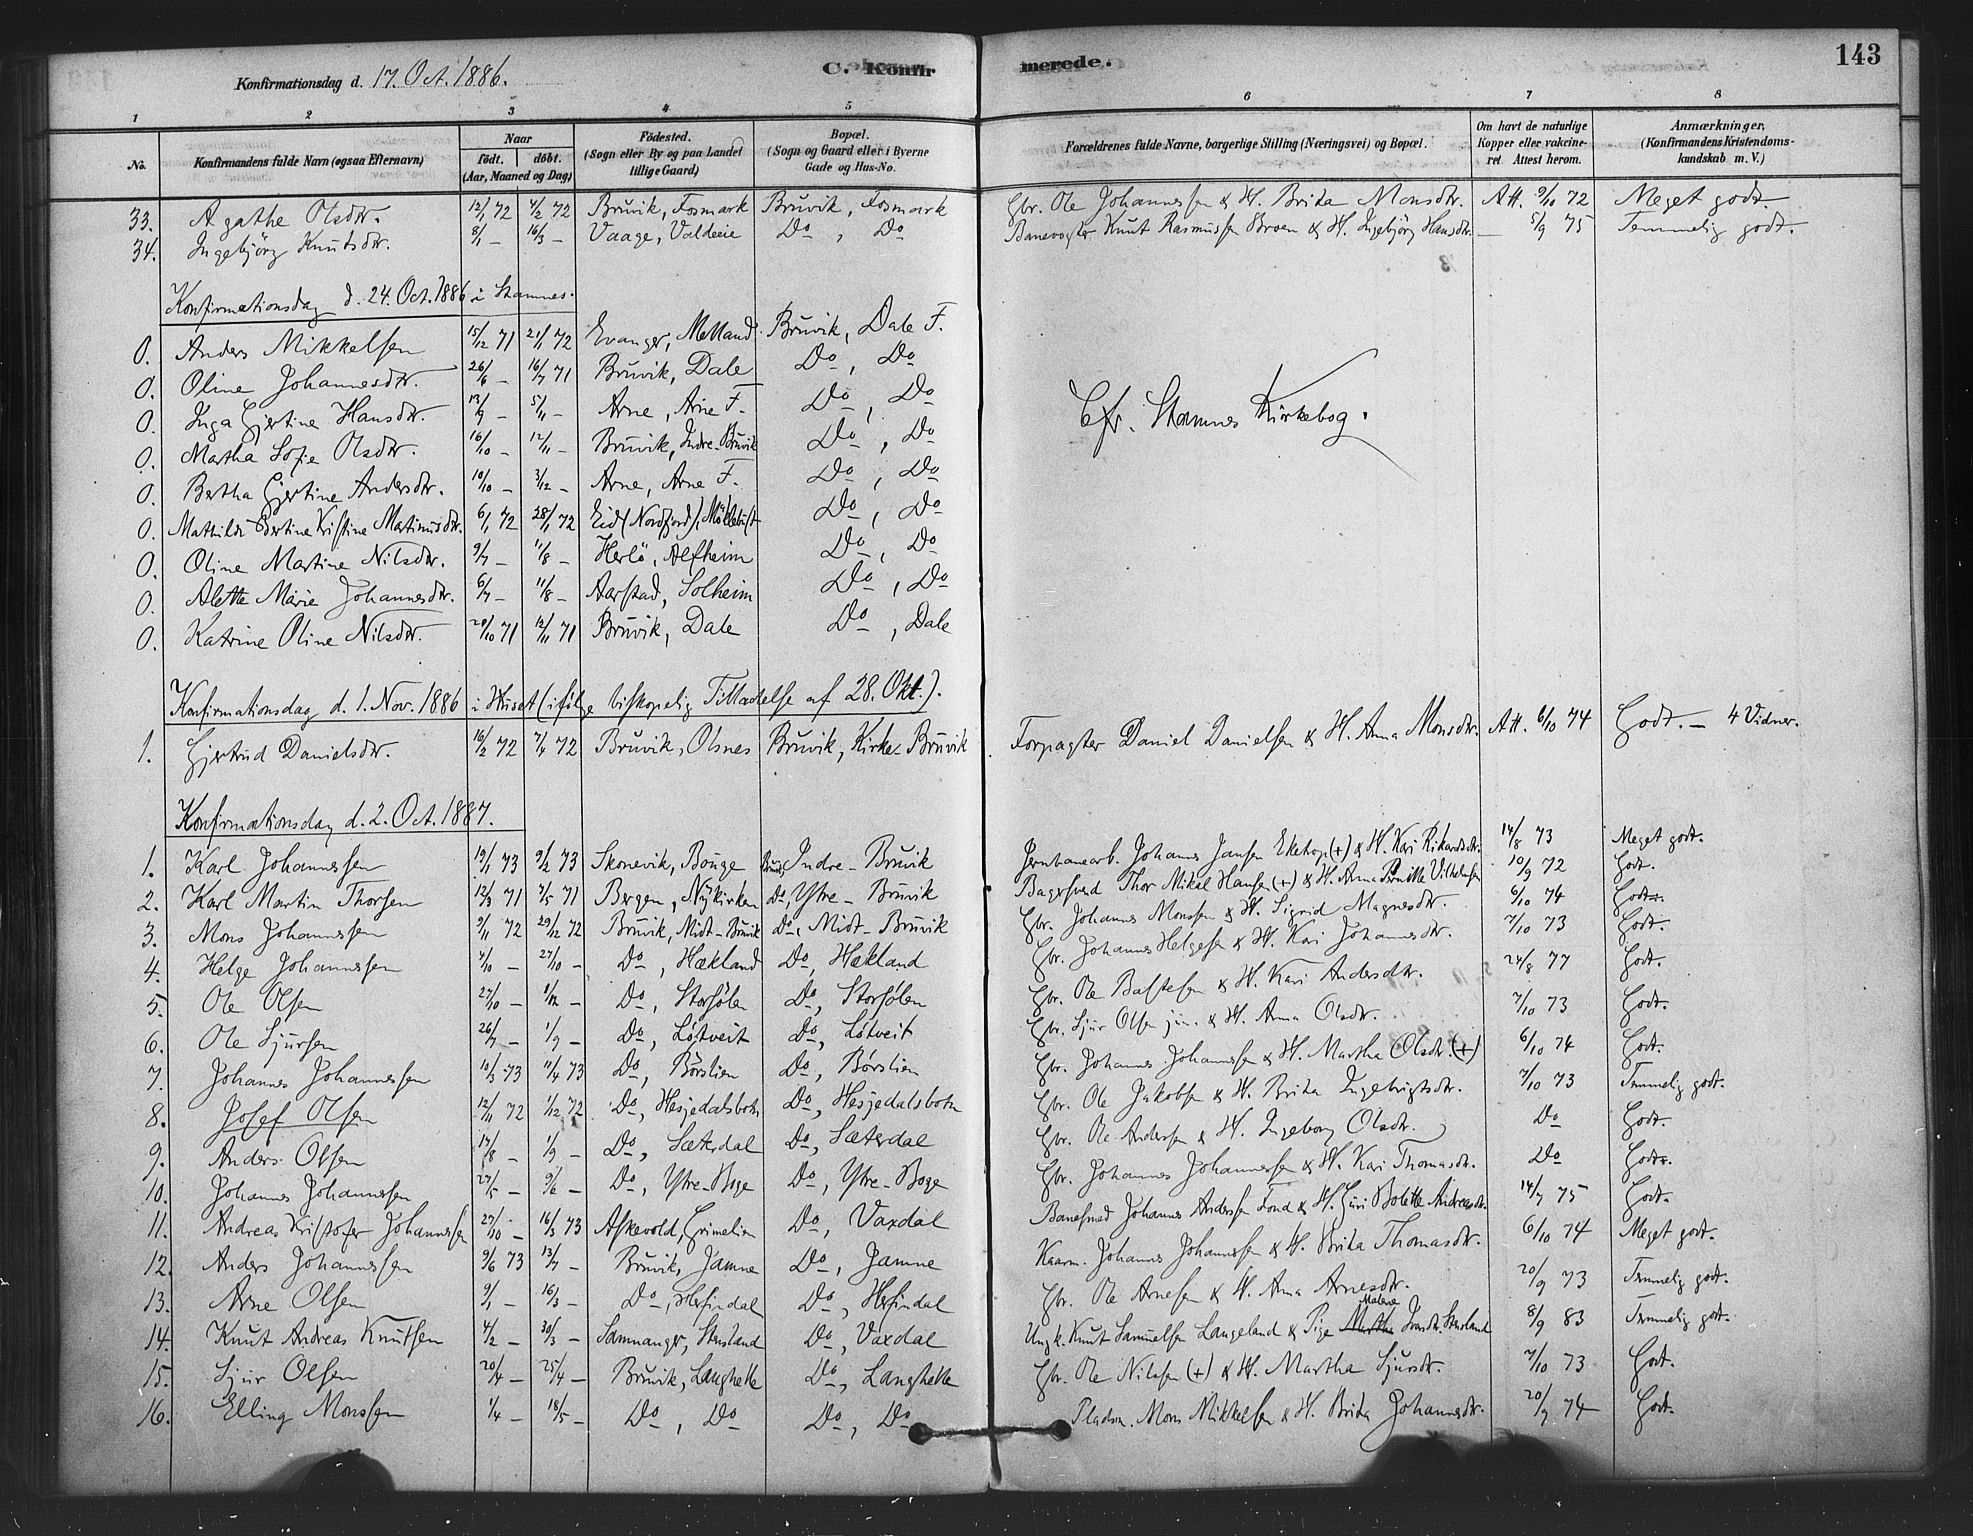 143
Konfirmationsdag d. 17. Oct. 1886.
C. Konfirmerede.
1 2 3 4 5 6 7 8
No.
Konfirmandens fulde Navn (ogsaa Efternavn)
Naar
födt. döbt.
(Aar, Maaned og Dag)
Födested.
(Sogn eller By og paa Landet
tillige Gaard)
Bopæl.
(Sogn og Gaard eller i Byerne
Gade og Hus-No.
Forældrenes fulde Navne, borgerlige Stilling (Næringsvei) og Bopæl.
Om havt de naturlige
Kopper eller vakcine-
ret Attest herom.
Anmærkninger.
(Konfirmandens Kristendoms-
kundskab m. V.)
33. Agathe Olsdtr. 12/1 72 4/2 72 Bruvik, Fosmark Bruvik, Fosmark Gbr. Ole Johannessen & H. Brita Monsdtr. Att. 9/10 72 Meget godt.
34. Ingebjörg Knutsdtr. 8/1 — 16/3 — Vaage, Valdeeie Do, Do Banevogter Knut Rasmussen Broen & H. Ingebjörg Hansdtr. — 5/9 75 Temmelig godt.
Konfirmationsdag d. 24. Oct. 1886 i Stamnes.
0. Anders Mikkelsen 15/12 71 21/1 72 Evanger, Melland Bruvik, Dale F.
0. Oline Johannesdtr. 26/6 — 16/7 71 Bruvik, Dale Do, Do
0. Inga Gjertine Hansdtr. 13/9 — 5/11 — Arne, Arne F. Do, Do
Cfr. Stamnes Kirkebog.
0. Martha Sofie Olsdtr. 16/10 — 12/11 — Bruvik, Indre-Bruvik Do, Do
0. Bertha Gjertine Andersdtr. 10/10 — 3/12 — Arne, Arne F. Do, Do
0. Mathilde Bertine Kristine Martinusdtr. 6/1 72 28/1 72 Eid (Nordfjord), Möklebust Do, Do
0. Oline Martine Nilsdtr. 9/7 — 11/8 — Herlö, Alfheim Do, Do
0. Alette Marie Johannesdtr. 6/7 — 11/8 — Aarstad, Solheim Do, Do
0. Katrine Oline Nilsdtr. 20/10 71 12/11 71 Bruvik, Dale Do, Dale
Konfirmationsdag d. 1. Nov. 1886 i Huset (ifølge biskopelig Tilladelse af 28. Okt.).
1. Gjertrud Danielsdtr. 16/2 72 7/4 72 Bruvik, Olsnes Bruvik, Kirke-Bruvik Forpagter Daniel Danielsen & H. Anna Monsdtr. Att. 6/10 74 Godt. — 4 Vidner.
Konfirmationsdag d. 2. Oct. 1887.
1. Karl Johannessen 19/1 73 9/2 73 Skonevik, Bouge Bruvik, Indre-Bruvik Jernbanearb. Johannes Jansen Eketop (+) & H. Kari Rikardsdtr. 14/8 73 Meget godt.
2. Karl Martin Thorsen 12/3 71 7/5 71 Bergen, Nykirken Do, Ystre-Bruvik Bagersvend Thor Mikal Hansen (+) & H. Anna Pernille Vilhelmsen 10/9 72 Godt.
3. Mons Johannessen 9/11 72 29/12 72 Bruvik, Midt-Bruvik Do, Midt-Bruvik Gbr. Johannes Monssen & H. Sigrid Magnesdtr. 6/10 74 Godt.
4. Helge Johannessen 4/10 — 27/10 — Do, Hækland Do, Hækland Gbr. Johannes Helgesen & H. Kari Johannesdtr. 7/10 73 Godt.
5. Ole Olsen 27/10 — 8/12 — Do, Storsölen Do, Storsölen Gbr. Ole Bastesen & H. Kari Andersdtr. 24/8 77 Godt.
6. Ole Sjursen 26/7 — 1/9 — Do, Løtveit Do, Løtveit Gbr. Sjur Olsen jun. & H. Anna Olsdtr. 7/10 73 Godt.
7. Johannes Johannessen 10/3 73 11/4 73 Do, Børslien Do, Børslien Gbr. Johannes Johannessen & H. Martha Olsdtr. (+) 6/10 74 Godt.
8. Josef Olsen 12/11 72 1/12 72 Do, Hesjedalsbotn Do, Hesjedalsbotn Gbr. Ole Jakobsen & H. Brita Ingebrigtsdtr. 7/10 73 Temmelig godt.
9. Anders Olsen 14/8 — 1/9 — Do, Sæterdal Do, Sæterdal Gbr. Ole Andersen & H. Ingeborg Olsdtr. Do Godt.
10. Johannes Johannessen 27/5 — 9/6 — Do, Ystre-Boge Do, Ystre-Boge Gbr. Johannes Johannessen & H. Kari Thomasdtr. Do Godt.
11. Andreas Kristofer Johannessen 27/10 — 16/3 73 Askevold, Grimelien Do, Vaxdal Banefmed Johannes Andersen Fond & H. Guri Bolette Andreasdtr. 14/7 75 Godt.
12. Anders Johannessen 9/6 73 13/7 — Bruvik, Jamne Do, Jamne Kaarm. Johannes Johannessen & H. Brita Thomasdtr. 6/10 74 Meget godt.
13. Arne Olsen 9/1 — 16/3 — Do, Herfindal Do, Herfindal Gbr. Ole Arnesen & H. Anna Arnesdtr. 20/9 73 Temmelig godt.
14. Knut Andreas Knutsen 4/2 — 30/3 — Samnanger, Stensland Do, Vaxdal Ungk. Knut Samuelsen Langeland & Pige Martha Malene Ivarsdtr. Stensland 8/9 83 Temmelig godt.
15. Sjur Olsen 20/4 — 25/4 — Bruvik, Langhelle Do, Langhelle Gbr. Ole Nilssen (+) & H. Martha Sjursdtr. 7/10 73 Godt.
16. Elling Monssen 1/4 — 18/5 — Do, Do Do, Do Pladsm. Mons Mikkelsen & H. Brita Johannesdtr. 20/9 74 Godt.